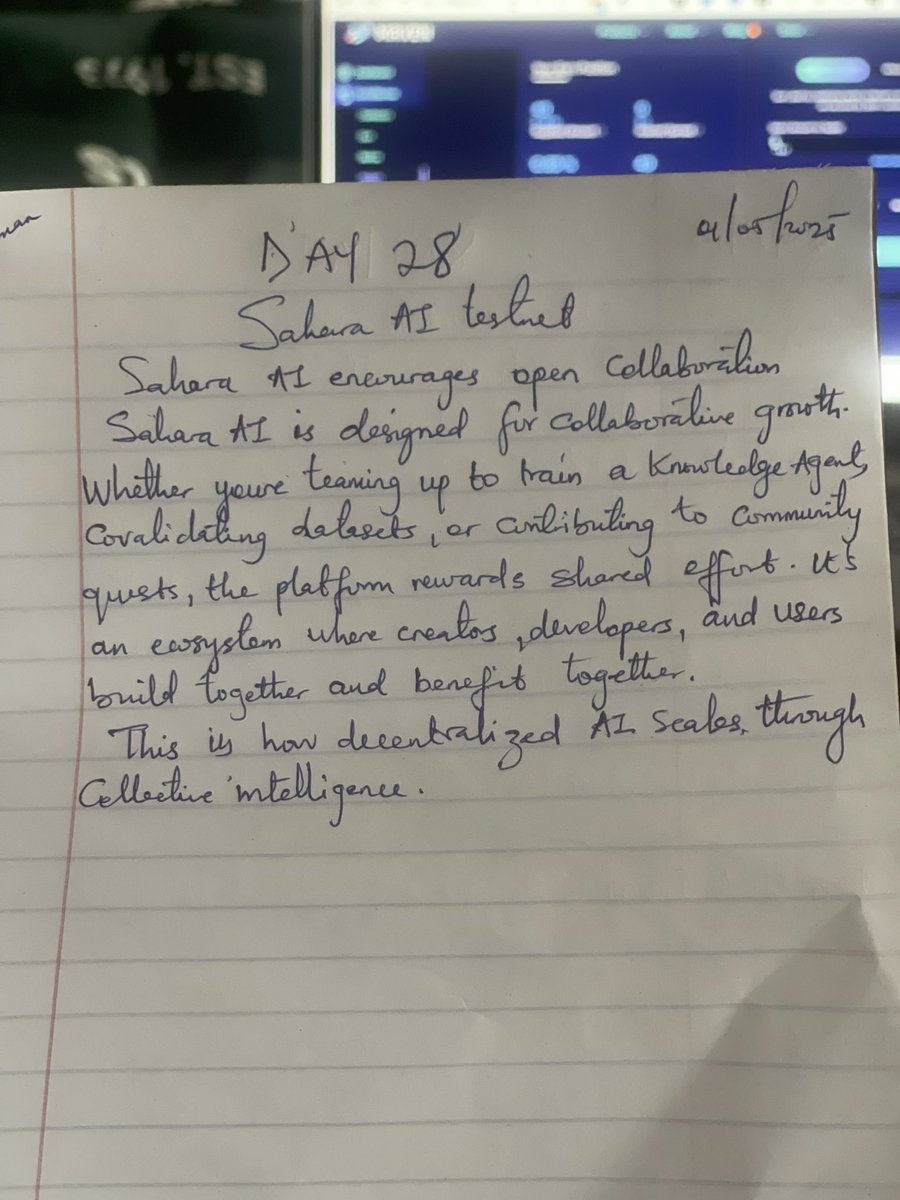 EST. 1973
man
DAY 28
01/05/2025
Sahara AI testnet
Sahara AI encourages open Collaboration
Sahara AI is designed for collaborative growth.
Whether youre teaming up to train a Knowledge Agent,
Covalidating datasets, or contributing to community
quests, the platform rewards shared effort. It's
an ecosystem where creators, developers, and users
build together and benefit together.
This is how decentralized AI Scales, through
Collective intelligence.